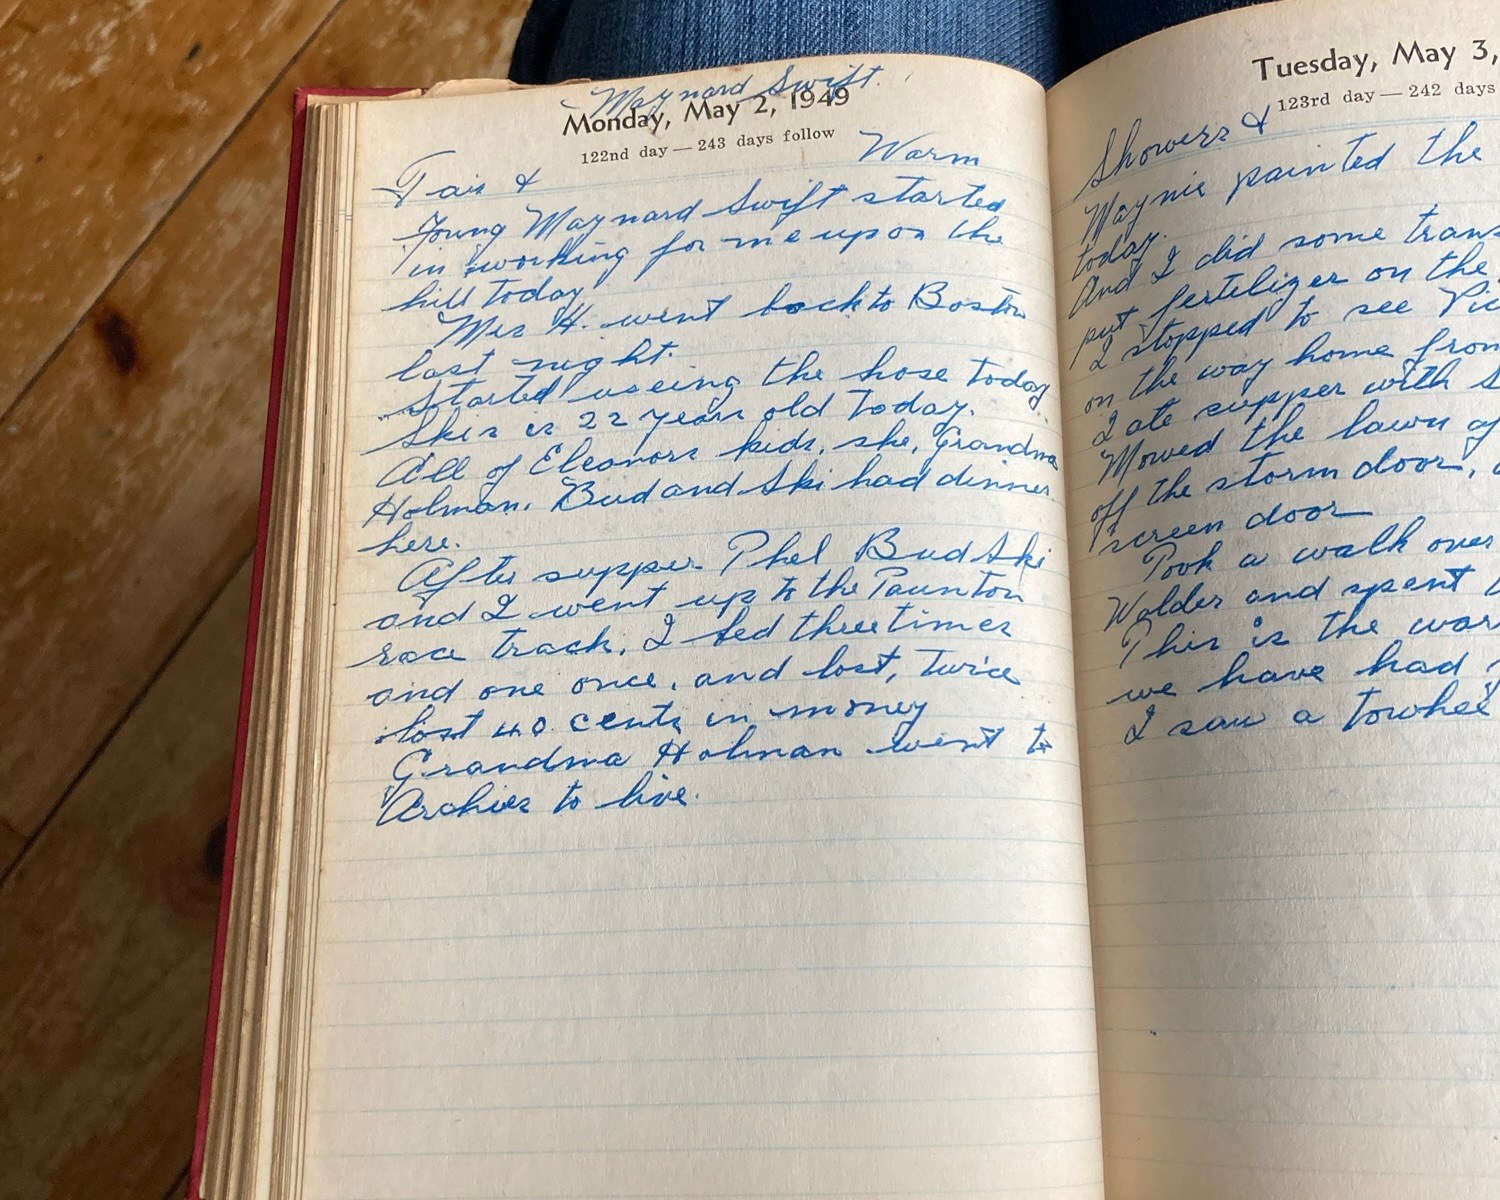 Maynard Swift.
Monday, May 2, 1949
122nd day — 243 days follow
Fair & Warm
Young Maynard Swift started
in working for me up on the
hill today
Mrs H. went back to Boston
last night.
Started useing the hose today.
Ski is 22 years old today.
All of Eleanors kids, she, Grandma
Holman, Bud and Ski had dinner
here.
After supper Phel Bud Ski
and I went up to the Taunton
race track, I bed three times
and one once, and lost, twice
lost 40 cents in money
Grandma Holman went to
Archies to live.
Tuesday, May 3,
123rd day — 242 days
Showers &
Maynie painted the
today.
And I did some trans
put fertilizer on the
I stopped to see
on the way home from
I ate supper with
Mowed the lawn
off the storm door,
screen door
Took a walk over
Walder and spent
This is the
we have had
I saw a towhee